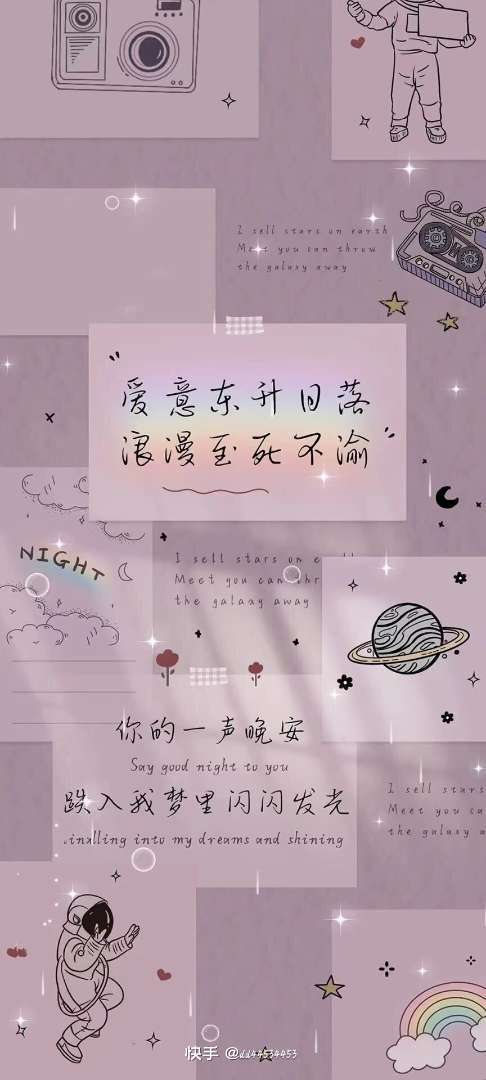 I sell stars on earth
Meet you can throw
the galaxy away
爱意东升日落
浪漫至死不渝
NIGHT
I sell stars on e
Meet you can thr
the galaxy away
你的一声晚安
Say good night to you
跌入我梦里闪闪发光
.inalling into my dreams and shining
I sell stars
Meet you ca
the galaxy a
快手 @dd44534453